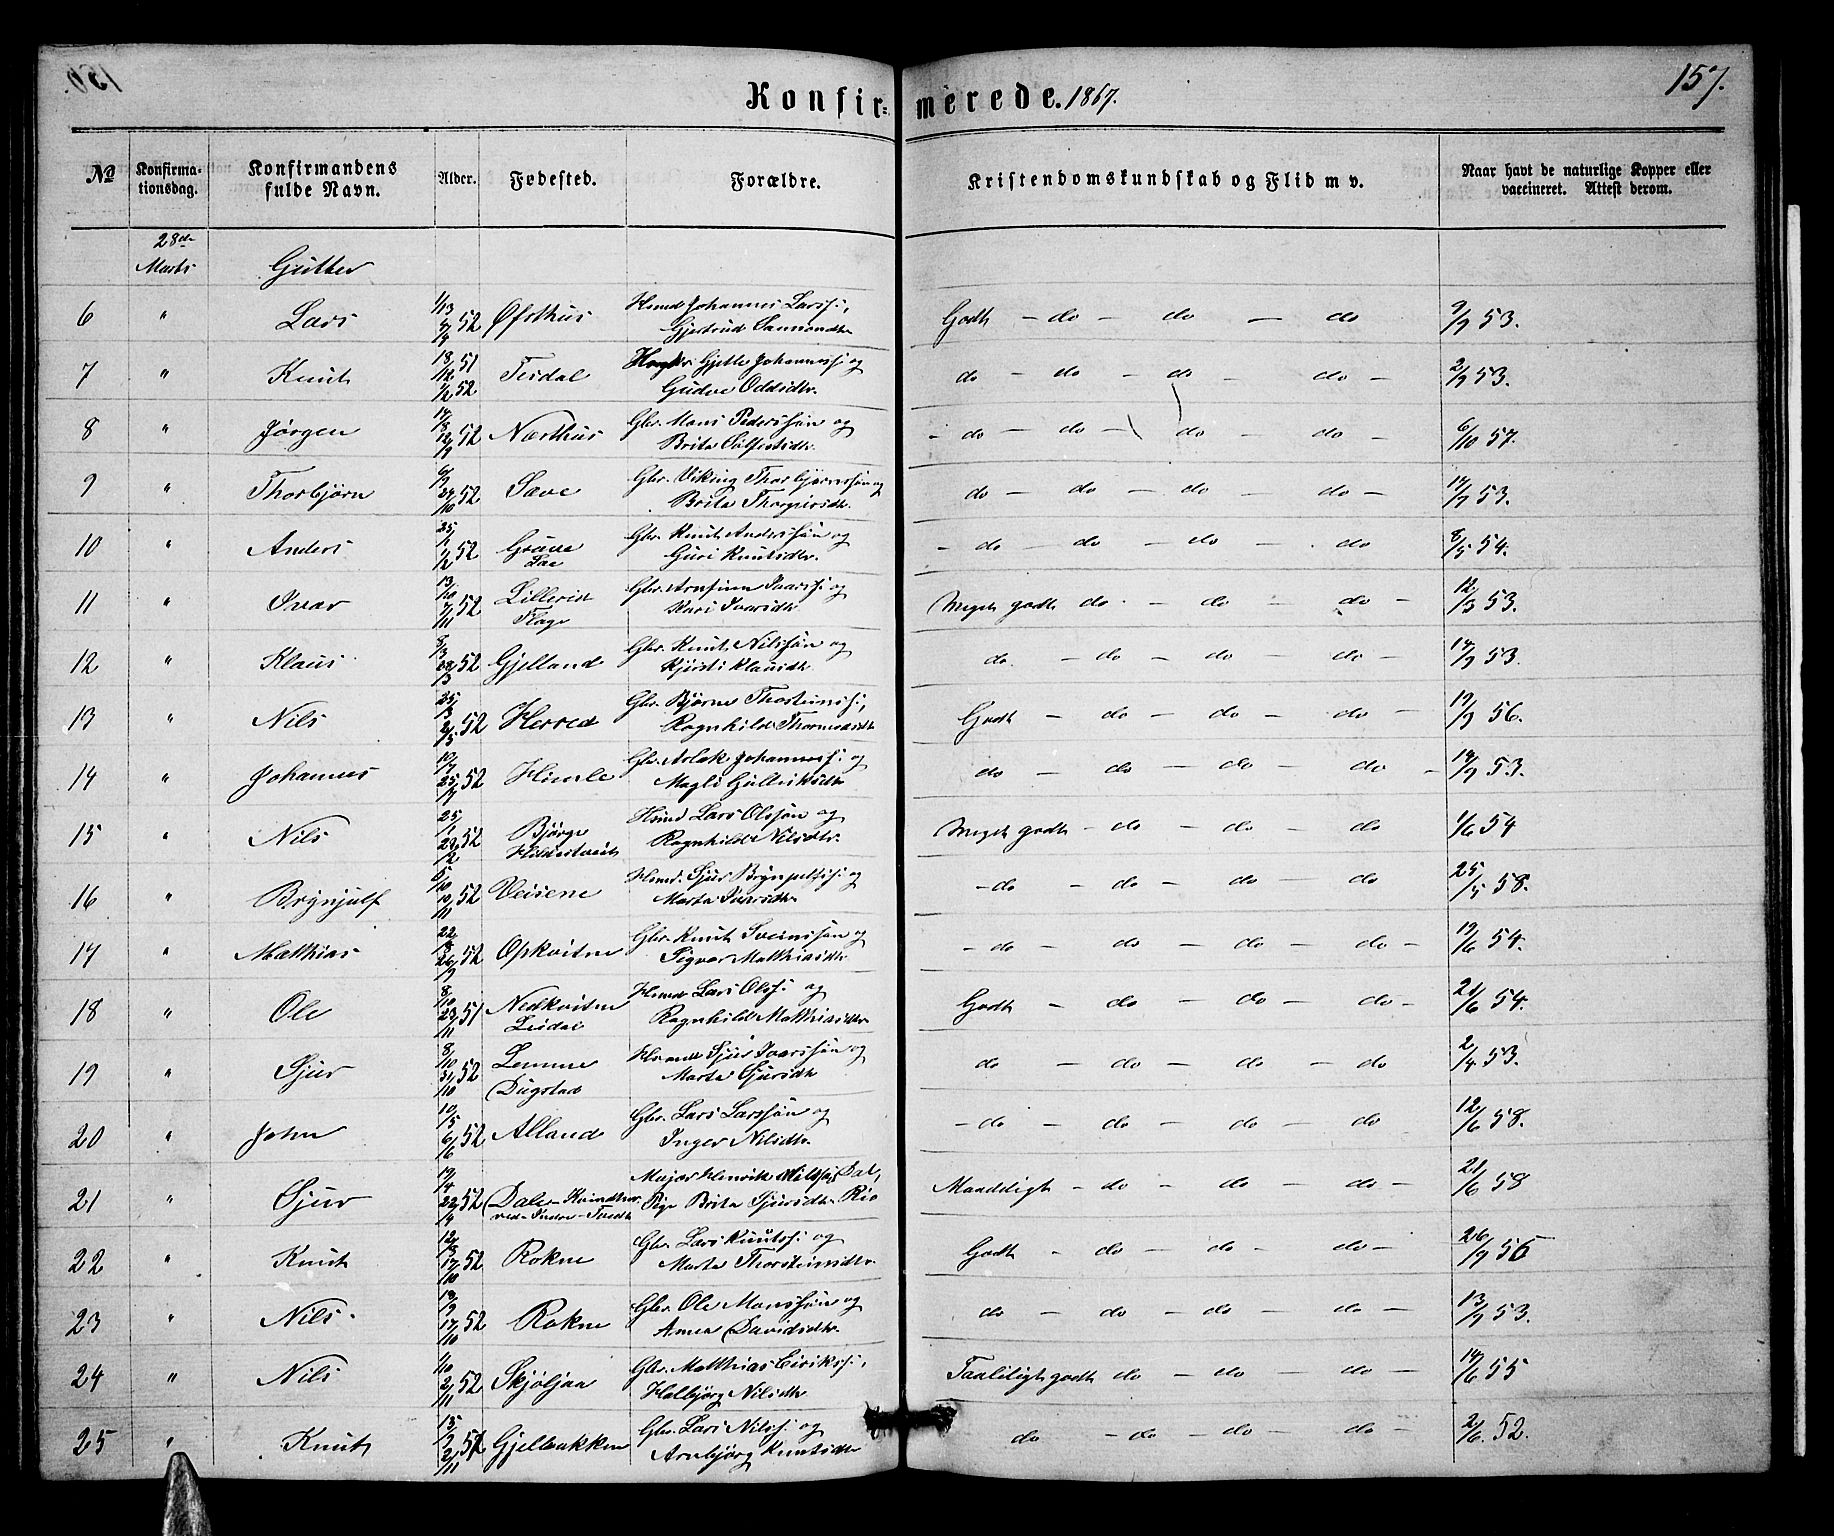 157.
Konfir= merede. 1867.
No Konfirma-tionsdag. Konfirmandens fulde Navn. Alder. Fødested. Forældre. Kristendomskundskab og Flid m v. Naar havt de naturlige Kopper eller vaccineret. Attest derom.
28de Marts Gutter
6 " Lars 52 Øfsthus Husmd Johannes Larss:, Gjertrud Godt - do - do - do 9/9 53.
7 " Knut 18/12 51 1/2 52 Tesdal Gjetle Johanness: og Gudve Oddsdtr. do - do - do - do - 2/9 53.
8 " Jørgen 52 Nærthus Gbr. Mons Pederssøn og Brita - do - do - do - do - 6/10 57.
9 " Thorbjørn 52 Sæve Gbr. Viking Thorbjørnssøn og Brita do - do - do - do - 14/9 53.
10 " Anders 25/1 1/2 52 Grave Lae Gbr. Knut Anderssøn og Guri Knutsdtr. - do - do - do - do 8/5 54.
11 " Ivar 13/10 7/11 52 Lillerid Flage Gbr. Arnfinn Ivarss: og Kari Ivarsdtr Meget godt do - do - do - 12/3 53.
12 " Klaus 52 Gjelland Gbr. Knut Nilssøn og Kjersti Klausdtr. do - do - do - do - 14/9 53.
13 " Nils 52 Herred Gbr. Bjørne Thosteinss:, Ragnhild Godt - do - do - do - 19/9 56.
14 " Johannes 10/7 25/7 52 Himle Gbr. Aslak Johanness: og Magli Gulleiksdtr do - do - do - do - 14/9 53.
15 " Nils 25/1 22/2 52 Bjørge Hildestveit Husmd Lars Olssøn og Ragnhild Nilsdtr. Meget godt - do - do - do 1/6 54
16 " Brynjulf 5/10 10/11 52 Veisene Husmd. Sjur Brynjulfss: og Marta Ivarsdtr - do - do - do - do 25/5 58.
17 " Matthias 52 Opkvitne Gbr. Knut Sveinssøn og Sigvor Matthiasdtr - do - do - do - do - 19/6 54.
18 " Ole 8/10 23/11 51 Nedkvitne Husmd Lars Olss: og Ragnhild Matthiasdtr Godt - do - do - do - 21/6 54.
19 " Sjur 8/10 31/10 52 Lemme Dugstad Husmd Sjur Ivarssøn og Marta Sjursdtr do - do - do - do 2/4 53.
20 " John 10/5 6/6 52 Alland Gbr. Lars Larssøn og Inger Nilsdtr. - do - do - do - do 12/6 58.
21 " Sjur 52 Dale - Major Henrik Dal, Pige Brita Sjursdtr. Rio Maadeligt - do - do - do - 21/6 58
22 " Knut 17/10 52 Rokne Gbr. Lars Knutss: og Marta Thorsteinsdtr. Godt - do - do - do - 26/9 56
23 " Nils 18/9 17/10 52 Rokne Gbr. Ole Monssøn og Anna Davidsdtr. do - do - do - do - 13/9 53.
24 " Nils 1/10 2/11 52 Skjøljaa Gbr. Matthias Eirikss:, Halbjørg Nilsdtr Taaleligt godt do - do - do - 14/6 55
25 " Knut 2/11 Gjelbakken Gbr. Lars Nilss: og Arnbjørg Knutsdtr do - do - do - do - 2/6. 52.